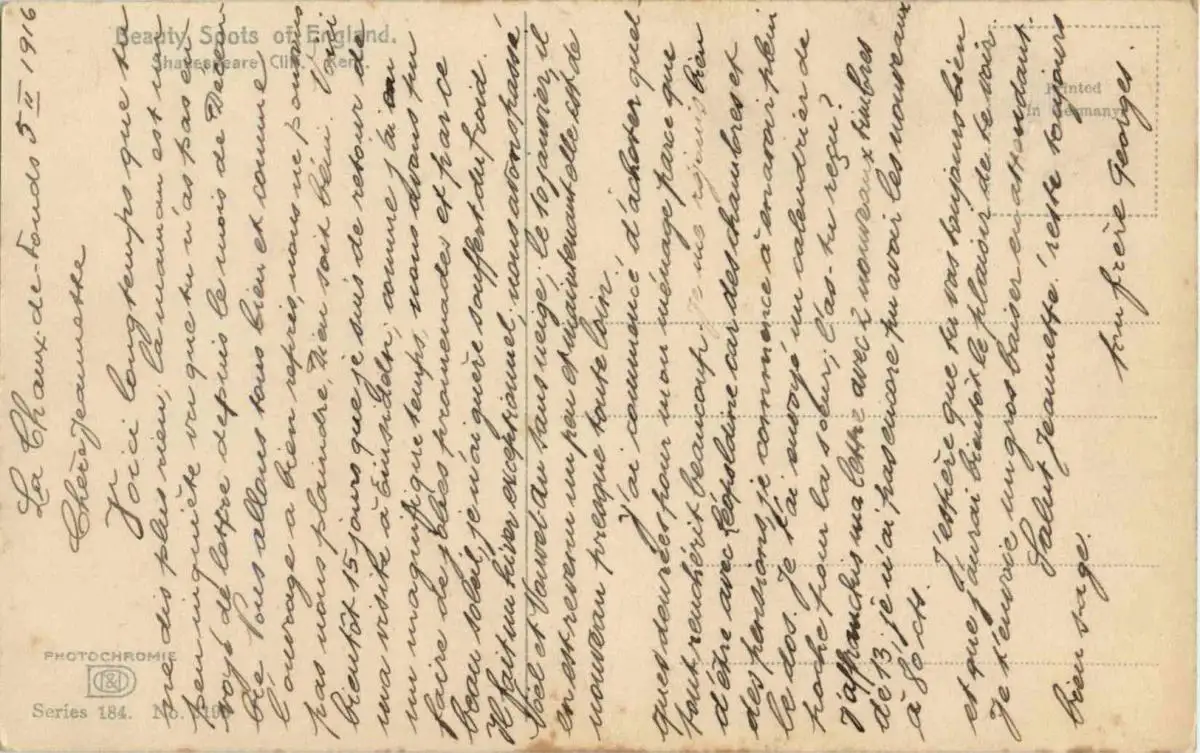 Beauty Spots of England.
Shakespeare Cliff. Kent.
Printed
in Germany
PHOTOCHROMIE
Series 184. No.
La Chaux-de-Fonds 5 II 1916
Chère Jeannette
Voici longtemps que tu
me dis plus rien, la maman est un
peu inquiète vu que tu n'as pas en
voyé de lettre depuis le mois de Décem
bre. Nous allons tous bien et comme
l'ouvrage a bien repris, nous ne pouvons
pas nous plaindre, Dieu soit béni. Voici
bientôt 15 jours que je suis de retour de
ma visite à Einsideln, comme j'ai eu
un magnifique temps, nous avons pu
faire de jolies promenades et par ce
beau soleil, je n'ai guère souffert du froid.
Il fait un hiver exceptionnel, nous avons passé
Noël et Nouvel an sans neige, le 10 janvier il
en est revenu un peu et maintenant elle est de
nouveau presque toute loin.
J'ai commencé d'acheter quel
ques denrées pour mon ménage parce que
tout renchérit beaucoup je me réjouis bien
d'être avec Léopoldine car des chambres et
des pensions, je commence à en avoir plein
le dos. Je t'ai envoyé un calendrier de
poche pour la sœur, l'as-tu reçu?
J'affranchis ma lettre avec 2 nouveaux timbres
de 13, je n'ai pas encore pu avoir les nouveaux
à 80 cts.
J'espère que tu vas toujours bien
et que j'aurai bientôt le plaisir de te voir.
Je t'envoie un gros baiser en attendant.
Salut Jeannette! reste toujours
bien sage.
ton frère Georges.